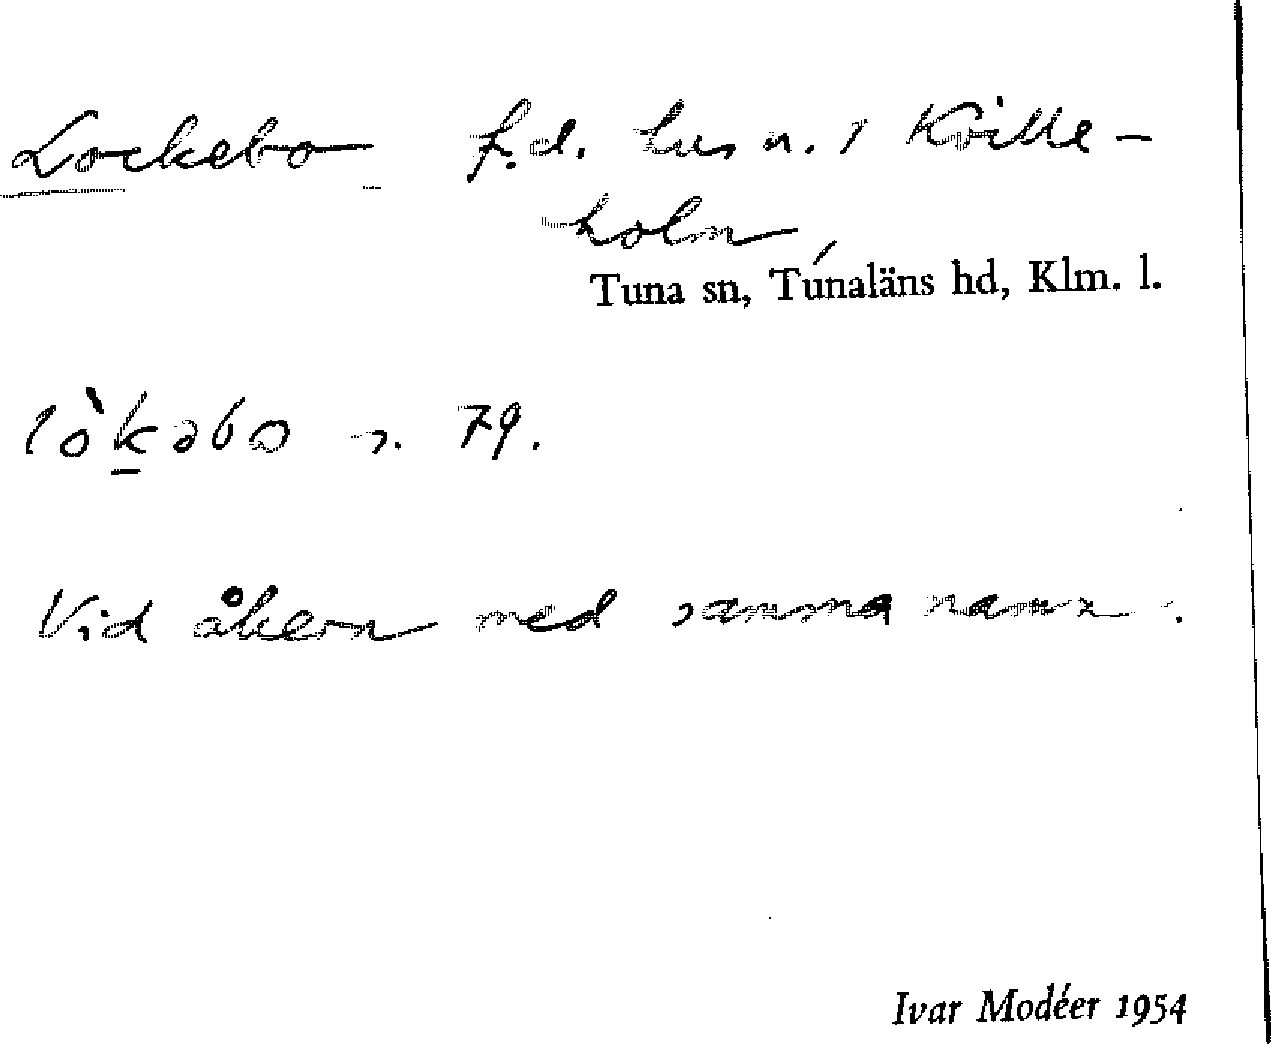 Lockebo f.d. hus n. i Kville-
holm,
Tuna sn, Tunaläns hd, Klm. l.
lò̀k̠əbo n. 79.
Vid åkern med samma namn.
Ivar Modéer 1954